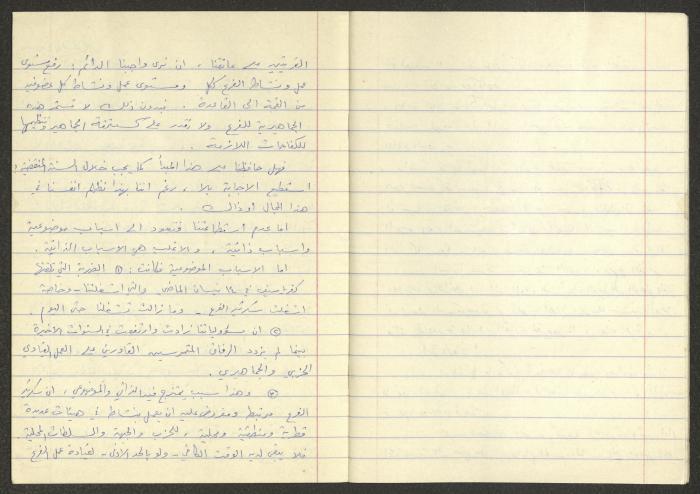 على عاتقنا، ان نرى واجبنا الدائم: رفع مستوى
عمل ونشاط الفرع ككل ومستوى عمل ونشاط كل عضو فيه
من القمة الى القاعدة. فبدون ذلك لا تستمر هذه
الجماهيرية للفرع ولا نقدر على الجماهير وتنظيمها
للكفاحات اللازمة.
فهل حافظنا على هذا المبدأ كما يجب خلال السنة المنقضية؟
استطيع الاجابة بلا، رغم اننا بهذا نظلم انفسنا في
هذا المجال او ذاك.
اما عدم استطاعتنا فتعود الى اسباب موضوعية
واسباب ذاتية، والاغلب هو الاسباب الذاتية.
اما الاسباب الموضوعية فكانت: ① الضربة التي تلقتها
كفرياسيف في نيسان الماضي والتي اشغلتنا - وخاصة
اشغلت سكرتير الفرع - وما زالت تشغلنا حتى اليوم.
② ان مسؤولياتنا زادت وارتفعت في السنوات الاخيرة
بينما لم يزدد الرفاق المتمرسين القادرين على العمل القيادي
الحزبي والجماهيري.
③ وهذا سبب يمتزج فيه الذاتي والموضوعي، ان سكرتير
الفرع مرتبط ومفروض عليه ان يعمل بنشاط في هيئات عديدة
قطرية ومنطقية ومحلية، للحزب والجبهة والسلطات المحلية
فلا يبقى لديه الوقت الكافي - ولو بالحد الادنى - لقيادة عمل الفرع